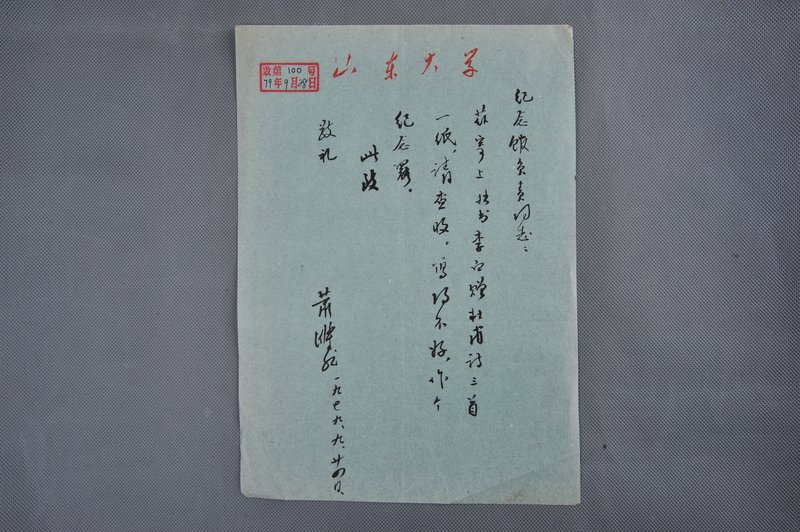 山东大学
收第100号
79年9月28日
纪念馆负责同志：
兹寄上拙书李白赠杜甫诗三首
一纸，请查收。写得不好，作个
纪念罢。
此致
敬礼
萧涤非
一九七九、九、廿四日